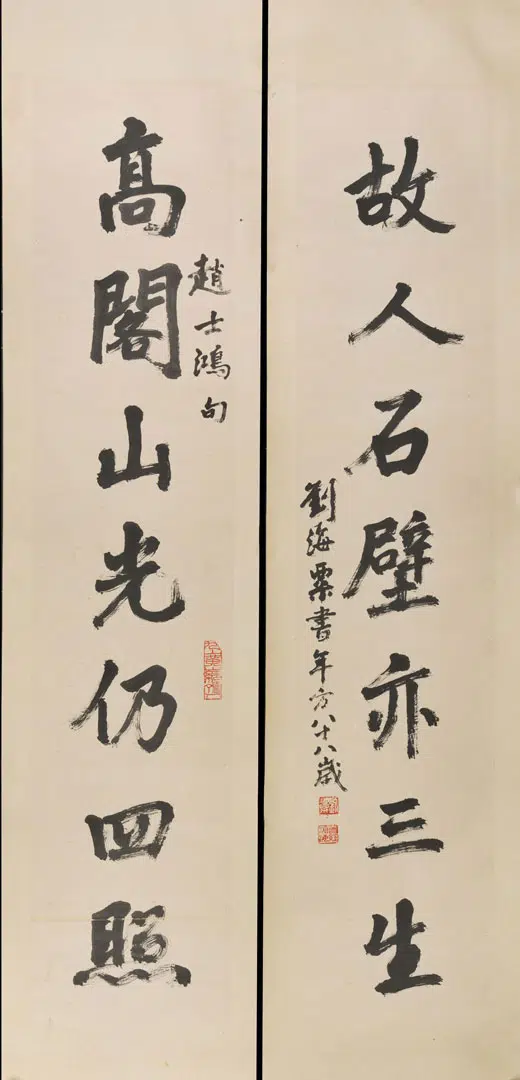 故人石壁亦三生
劉海粟書年方八十八歲
趙士鴻句
高閣山光仍四照